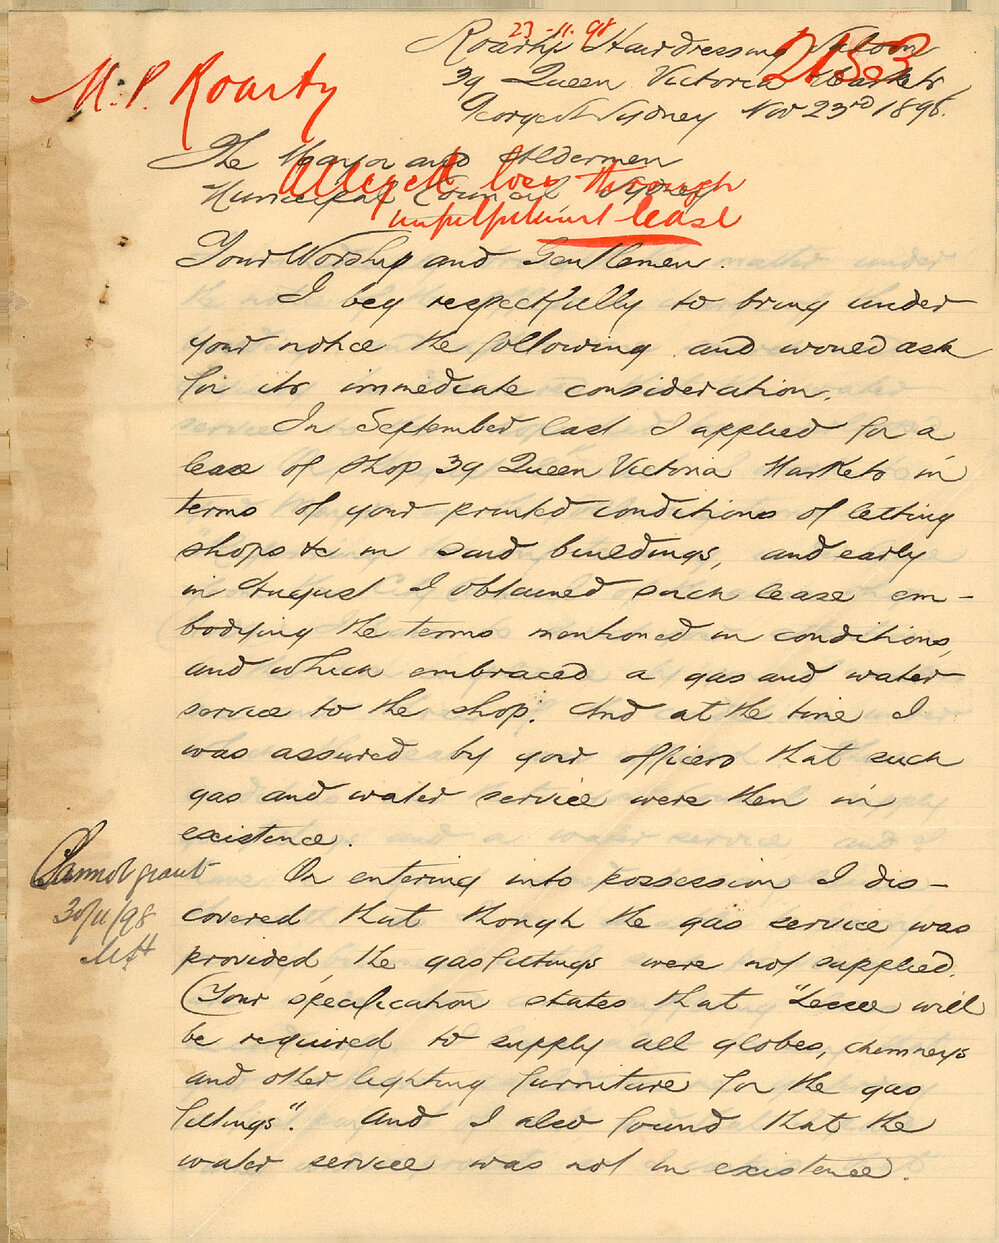 23-11-98
Roarty Hairdressing Saloon
2153
39 Queen Victoria Markets
M. P. Roarty
George St Sydney Nov 23rd 1898.
The Mayor and Aldermen
Municipal Council, Sydney
Alleged loss through
unfulfilment lease
Your Worship and Gentlemen.
I beg respectfully to bring under
your notice the following and would ask
for its immediate consideration.
In September last I applied for a
lease of shop 39 Queen Victoria Markets in
terms of your printed conditions of letting
shops &c in said buildings, and early
in August I obtained such lease em-
bodying the terms mentioned in conditions,
and which embraced a gas and water
service to the shop. And at the time I
was assured by your officers that such
gas and water service were then in
existence.
Cannot grant
30/11/98
On entering into possession I dis-
covered that though the gas service was
provided, the gasfittings were not supplied.
(Your specification states that "Lessee will
be required to supply all globes, chimneys
and other lighting furniture for the gas
fittings". And I also found that the
water service was not in existence.